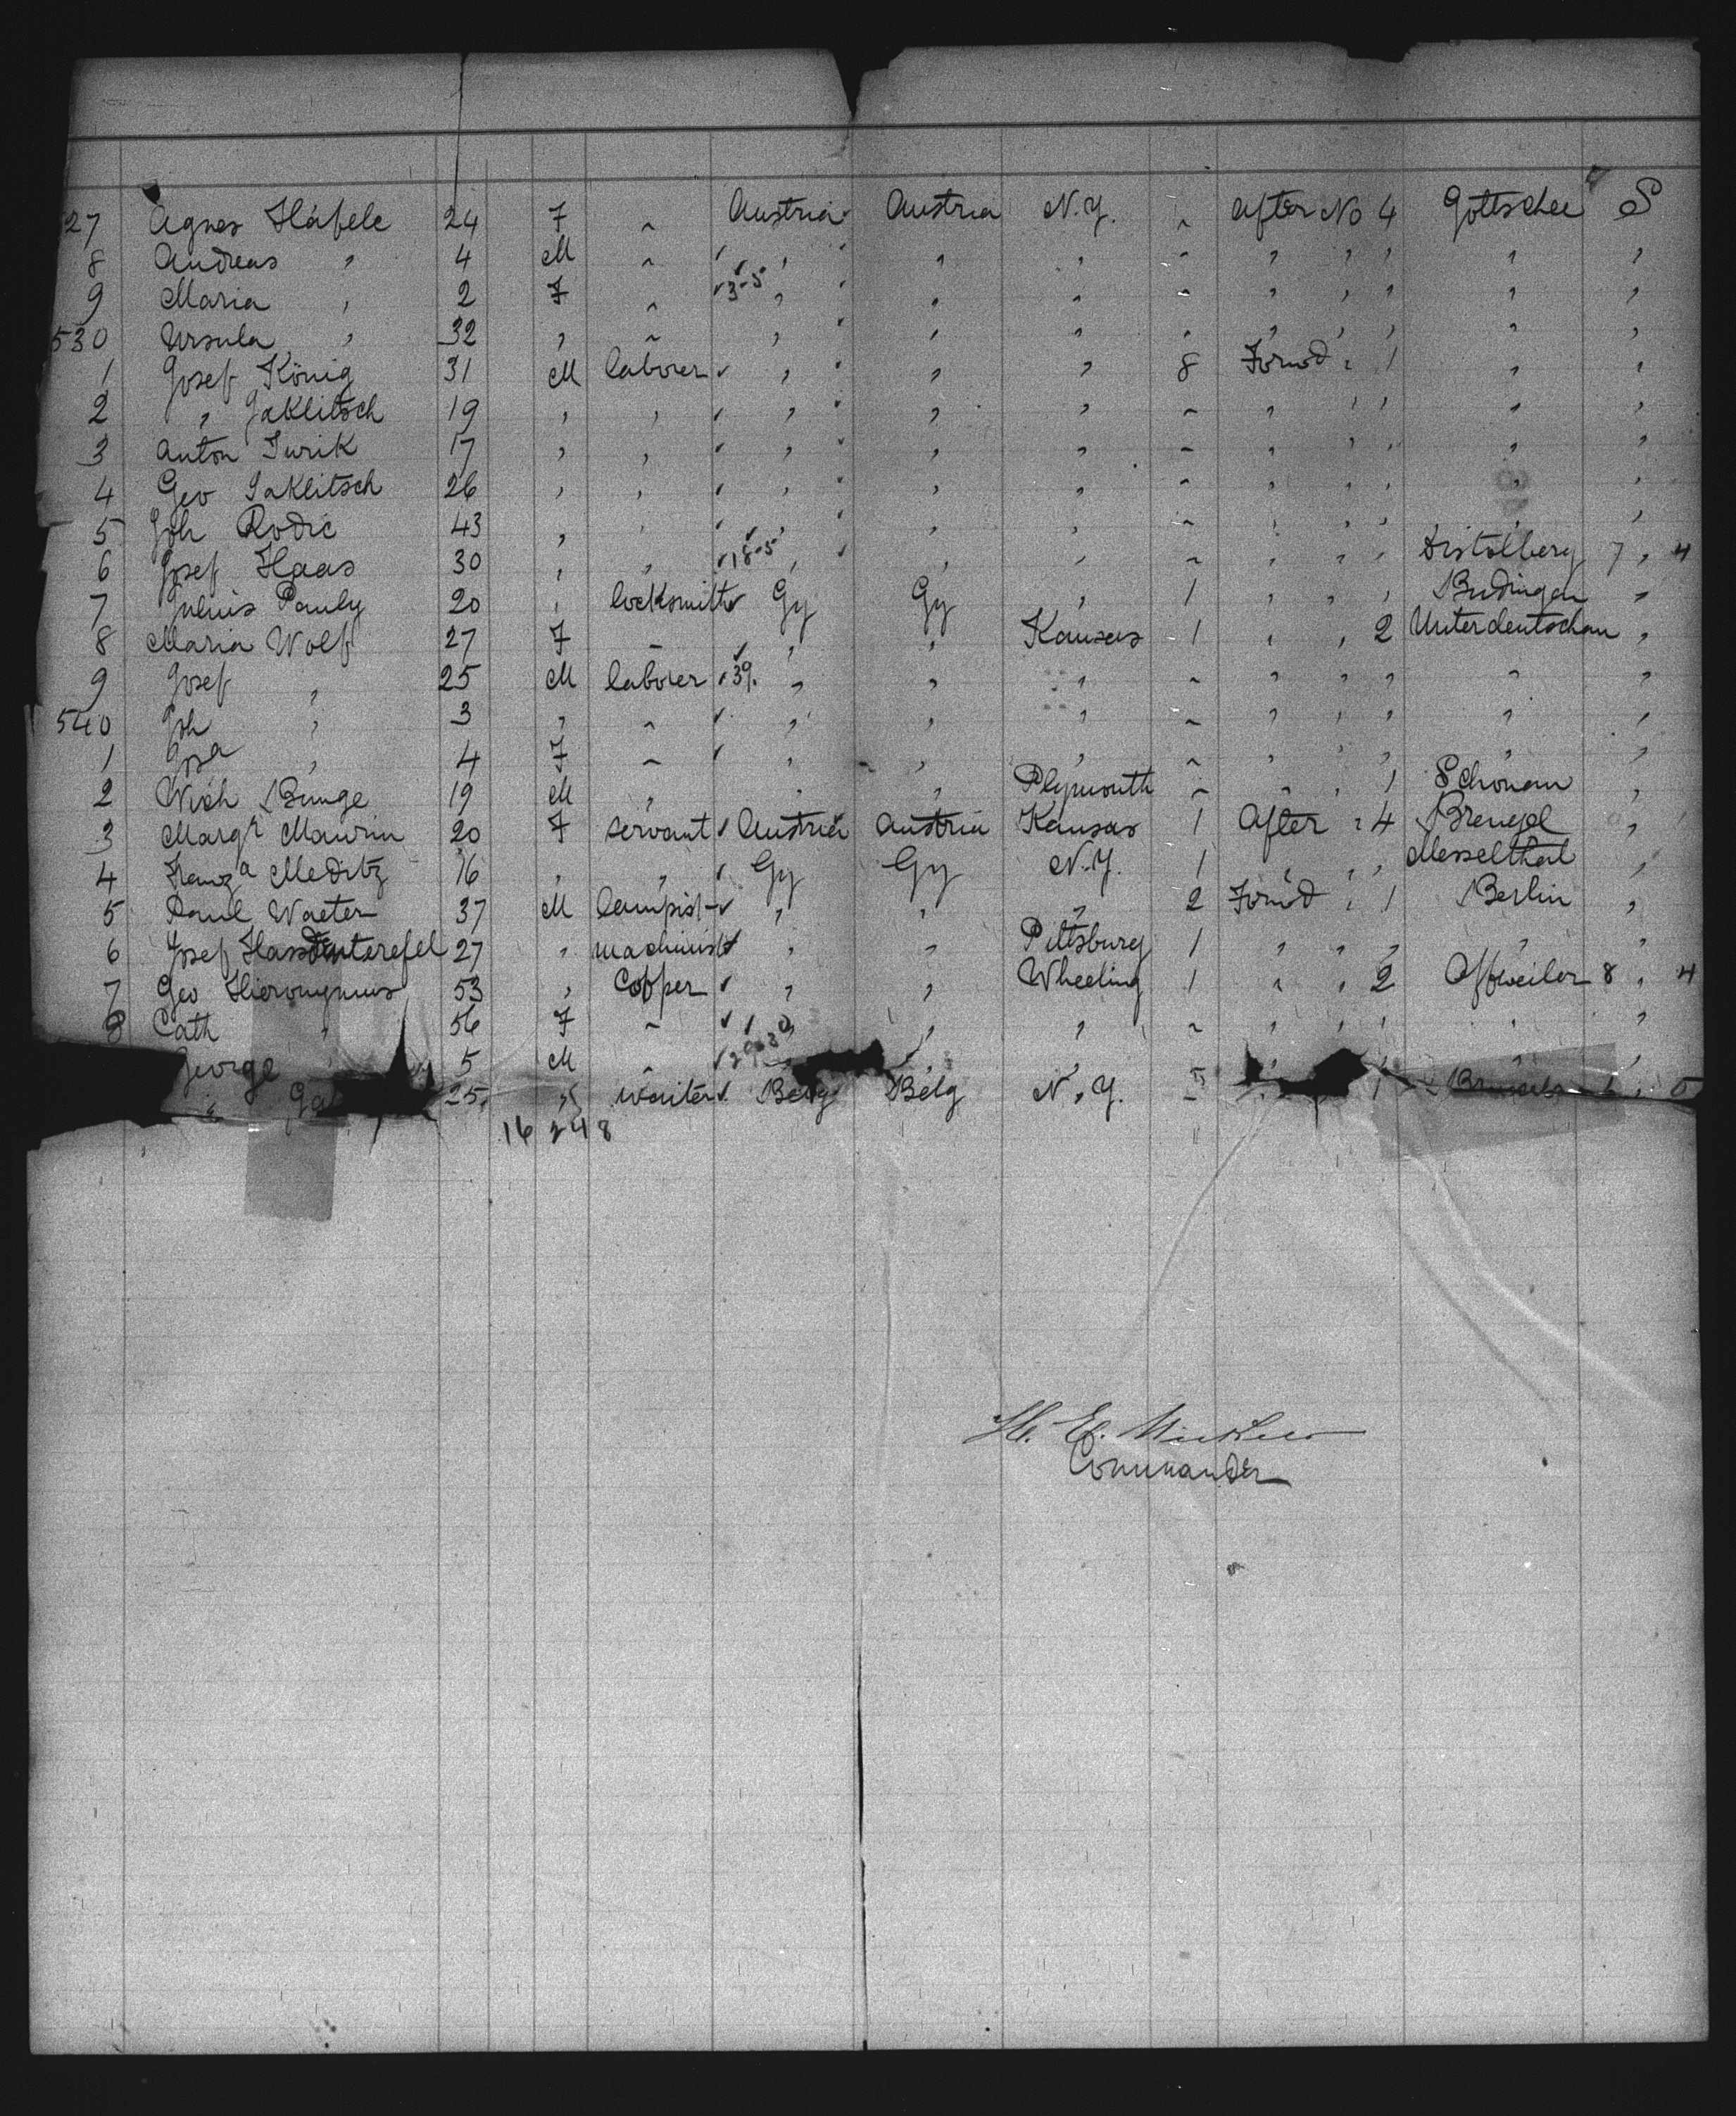 27 Agnes Häfele 24 F " Austria Austria N.Y. " After No 4 Gottschee S
8 Andreas " 4 M " " " " " " " " " "
9 Maria " 2 F " 3-5 " " " " " " " " "
530 Ursula " 32 " " " " " " " " " " "
1 Josef König 31 M laborer " " " 8 Forwd " 1 " "
2 " Jaklitsch 19 " " " " " " " " " " "
3 Anton Turik 17 " " " " " " " " " " "
4 Geo Jaklitsch 26 " " " " " " " " " " "
5 Joh Rodic 43 " " " " " " " " " " "
6 Josef Haas 30 " " 18-5 " " " " " " " 7 " 4
7 Julius Pauly 20 " locksmith Gy Gy " 1 " " " Budingen "
8 Maria Wolf 27 F " " " Kansas 1 " " 2 Unterdeutschau "
9 Josef " 25 M laborer 39. " " " " " " " " "
540 Joh " 3 " " " " " " " " " " "
1 Josa " 4 F " " " " " " " " " "
2 Nich Bunge 19 M " " " Plymouth " " " 1 Schönau "
3 Margr Maurin 20 F servant Austria Austria Kansas 1 After " 4 "
4 Franza Meditz 16 " " Gy Gy N.Y. 1 " " " Messelthal "
5 Paul Waeter 37 M lampist " " " 2 Forwd " 1 Berlin "
6 Josef 27 " machinist " " Pittsburg 1 " " " " "
7 Geo Hieronymus 53 " Copper " " Wheeling 1 " " 2 Offweiler 8 " 4
8 Cath " 56 F " " " " " " " " " "
George 5 M " " " " " " "
" 25. " waiter Belg Belg N.Y. " 1 Brussels " 5
16 248
Commander